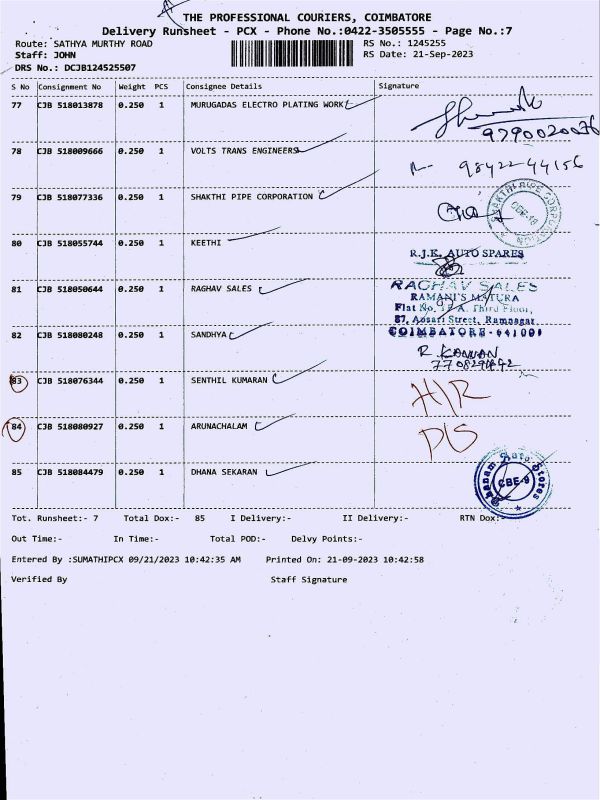 THE PROFESSIONAL COURIERS, COIMBATORE
Delivery Runsheet - PCX - Phone No.:0422-3505555 - Page No.:7
Route: SATHYA MURTHY ROAD RS No.: 1245255
Staff: JOHN RS Date: 21-Sep-2023
DRS No.: DCJB124525507
S No Consignment No Weight PCS Consignee Details Signature
77 CJB 518013878 0.250 1 MURUGADAS ELECTRO PLATING WORK
9790020076
78 CJB 518009666 0.250 1 VOLTS TRANS ENGINEERS
98422-44156
79 CJB 518077336 0.250 1 SHAKTHI PIPE CORPORATION
SHAKTHI PIPE CORPORATION CBE-18
80 CJB 518055744 0.250 1 KEETHI
R.J.K. AUTO SPARES
81 CJB 518050644 0.250 1 RAGHAV SALES
RAGHAV SALES
RAMANI'S MAYURA
Flat No. A, Third Floor,
87, Ansari Street, Ramnagar
COIMBATORE-641009
82 CJB 518080248 0.250 1 SANDHYA
R. KANNAN
83 CJB 518076344 0.250 1 SENTHIL KUMARAN
H/R
84 CJB 518080927 0.250 1 ARUNACHALAM
D/S
85 CJB 518084479 0.250 1 DHANA SEKARAN
Auto Stores CBE-9
Tot. Runsheet:- 7 Total Dox:- 85 I Delivery:- II Delivery:- RTN Dox:-
Out Time:- In Time:- Total POD:- Delvy Points:-
Entered By :SUMATHIPCX 09/21/2023 10:42:35 AM Printed On: 21-09-2023 10:42:58
Verified By Staff Signature